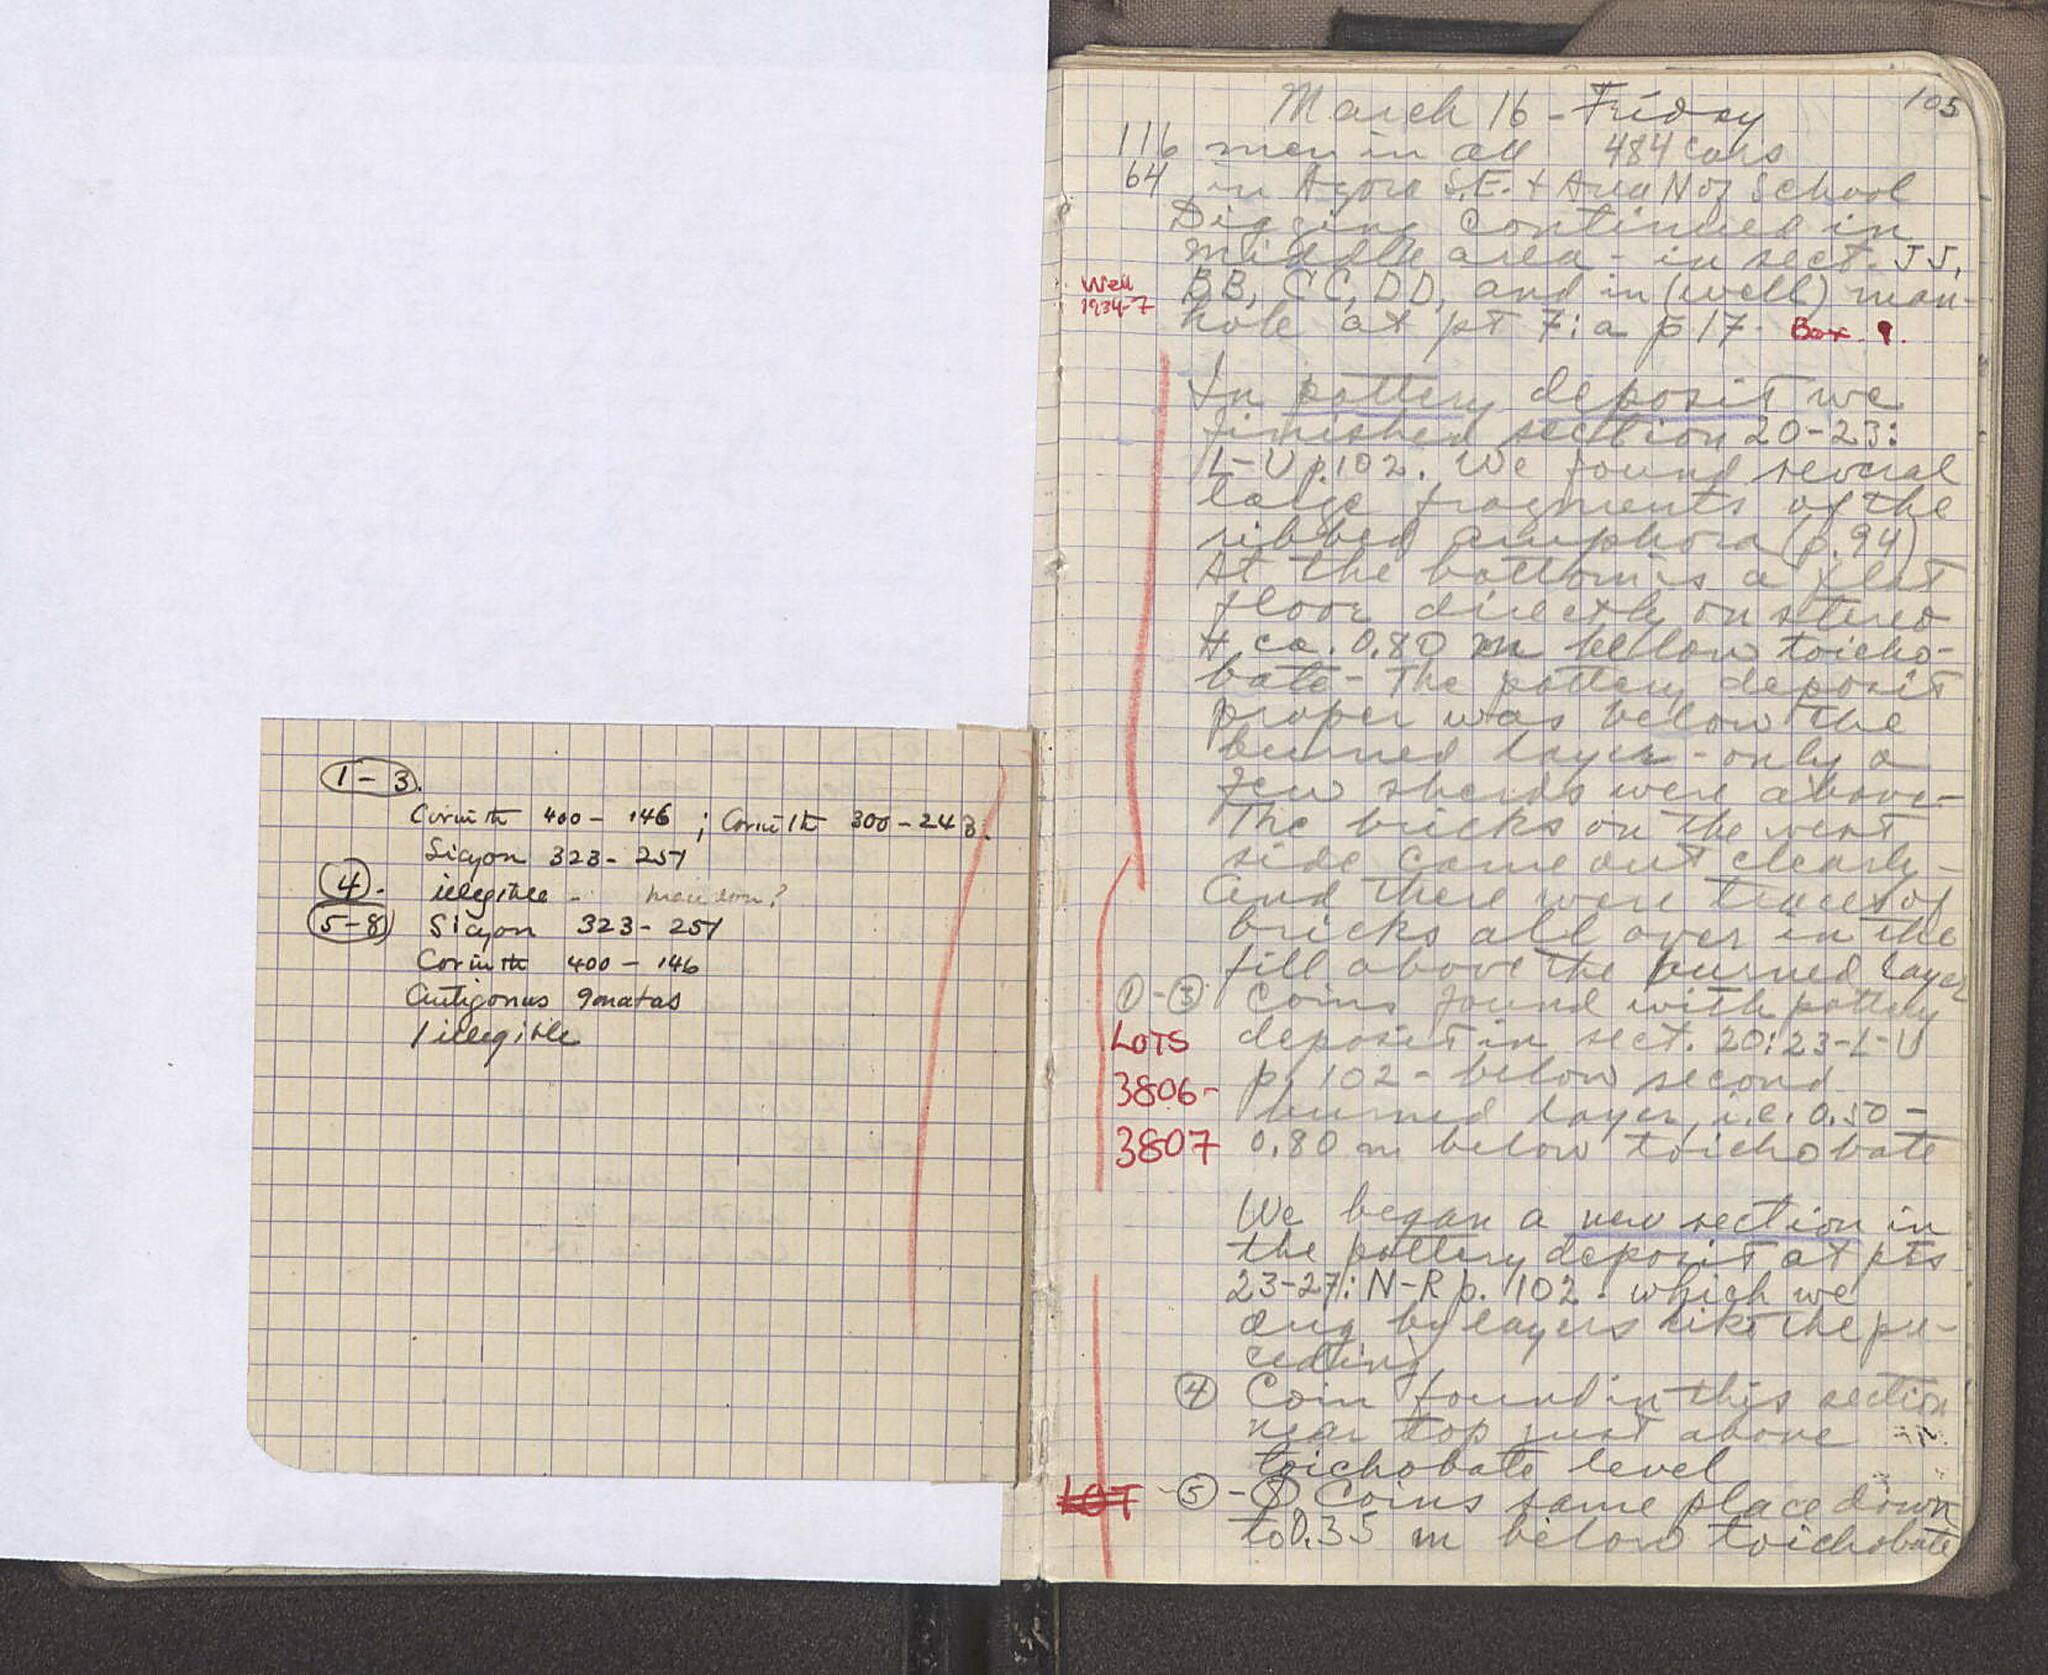 1-3.
Corinth 400-146; Corinth 300-243.
Sicyon 323-251
4. illegible - Macedon?
5-8 Sicyon 323-251
Corinth 400-146
Antigonus Gonatas
1 illegible
105
March 16 - Friday
116 men in all 484 cars
64 in Agora S.E. + Area N of School
Digging continued in
middle area - in sect. JJ,
Well
1934-7
BB, CC, DD, and in (well) man-
hole at pt 7:a p 17. Box 9.
In pottery deposit we
finished section 20-23:
L-U p.102. We found several
large fragments of the
ribbed amphora (p.94)
At the bottom is a flat
floor directly on stereo
H ca. 0.80 m bellow toicho-
bate - The pottery deposit
proper was below the
burned layer - only a
few sherds were above -
The bricks on the west
side came out clearly -
and there were traces of
bricks all over in the
fill above the burned layer
1-3 Coins found with pottery
LOTS deposit in sect. 20:23-L-U
3806- p. 102 - below second
burned layer, i.e. 0.50-
3807 0.80 m below toichobate
We began a new section in
the pottery deposit at pts
23-27: N-R p. 102. which we
dug by layers like the pre-
ceding
4 Coin found in this section
near top just above
toichobate level
LOT 5-8 Coins same place down
to 0.35 m below toichobate